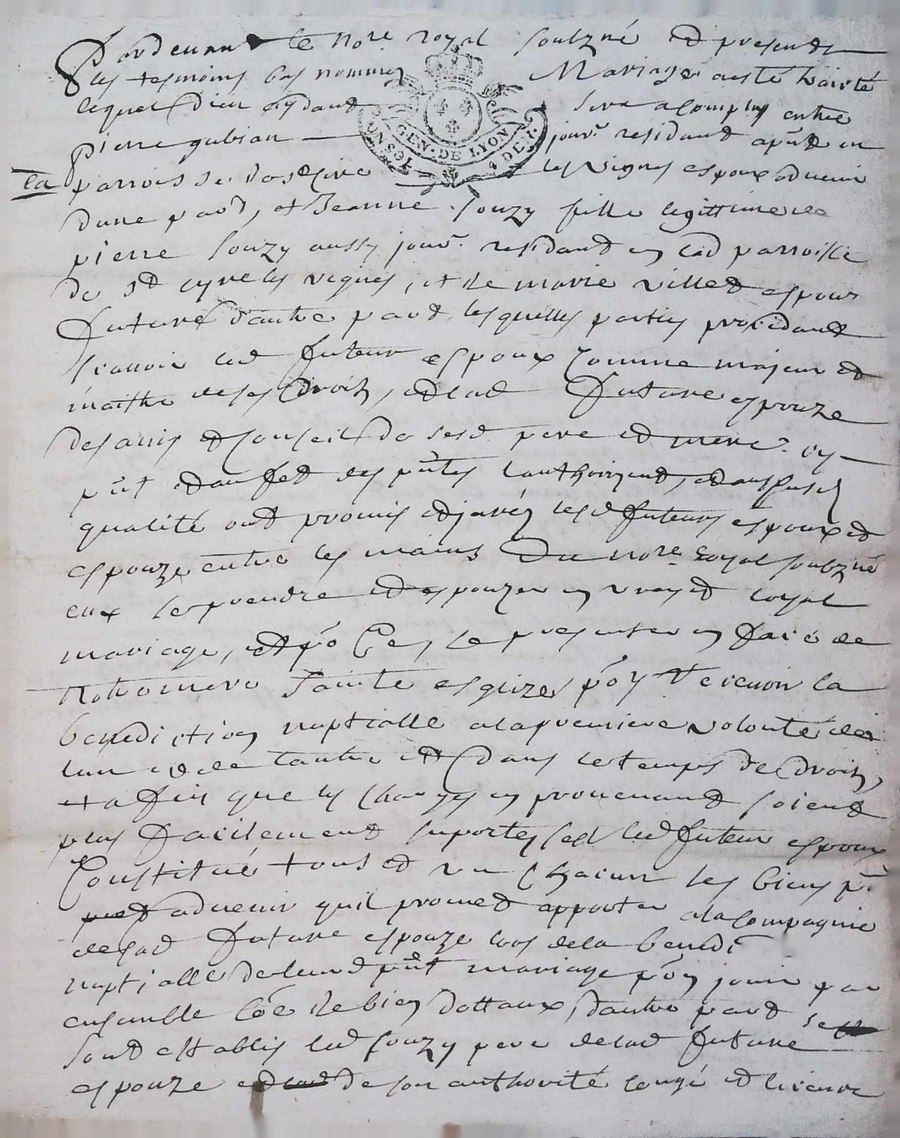 Pardevant le nore royal soubzné et presents
les tesmoins bas nommez Mariage a esté traité
lequel Dieu aydant sera acomply entre
Pierre gubian jour. residant a en
la parroisse de les vignes espoux advenir
GEN. DE LYON
UN SOL 4 DE
dune part, et Jeanne Souzy fille legittime de
pierre Souzy aussy jour. residant en lad parroisse
de St cyre les vignes, et de marie villed espouze
future d'autre part, lesquelles parties procedant
scavoir led futeur espoux comme majeur et
maitre de ses droits, et lad future espouze
des avis et conseil de sesd pere et mere cy
pnt
qualité ont promis et jurés lesd futeurs espoux et
espouze entre les mains du nore royal soubzné
eux se prendre et espouzer en vray et loyal
mariage, et po ce, se presenter en face de
notre mere sainte esglize po y recevoir la
benediction nuptialle a la premiere volonté de
lun et de lautre et dans le temps de droit,
et afin que les charges en provenant soient
plus facilement suportes sest led futeur espoux
Constitué tous et un chacun ses biens pnt
advenir quil promet apporter a la compagnie
de lad future espouze lors de la benedi
nuptialle de leurd pnt mariage po en jouir par
ensemble cõe de bien dottaux, dautre part se
sont establis led souzy pere de lad future
espouze de son authorité congé et licence